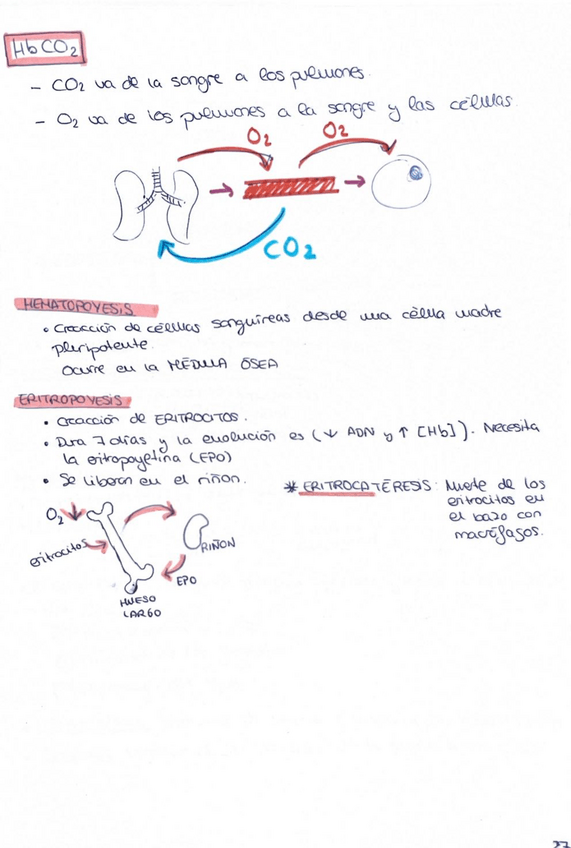 HbCO2
- CO2 va de la sangre a los pulmones.
- O2 va de los pulmones a la sangre y las células.
O2 O2
CO2
HEMATOPOYESIS
• Creacción de células sanguíneas desde una célula madre
pluripotente.
Ocurre en la MÉDULA ÓSEA
ERITROPOYESIS
• Creacción de ERITROCITOS.
• Dura 7 días y la evolución es (↓ ADN y ↑ [Hb]). Necesita
la eritropoyetina (EPO)
• Se liberan en el riñon.
* ERITROCATÉRESIS: Muerte de los
eritrocitos en
el bazo con
macrófagos.
O2 ↓
eritrocitos
RIÑON
EPO
HUESO
LARGO
27